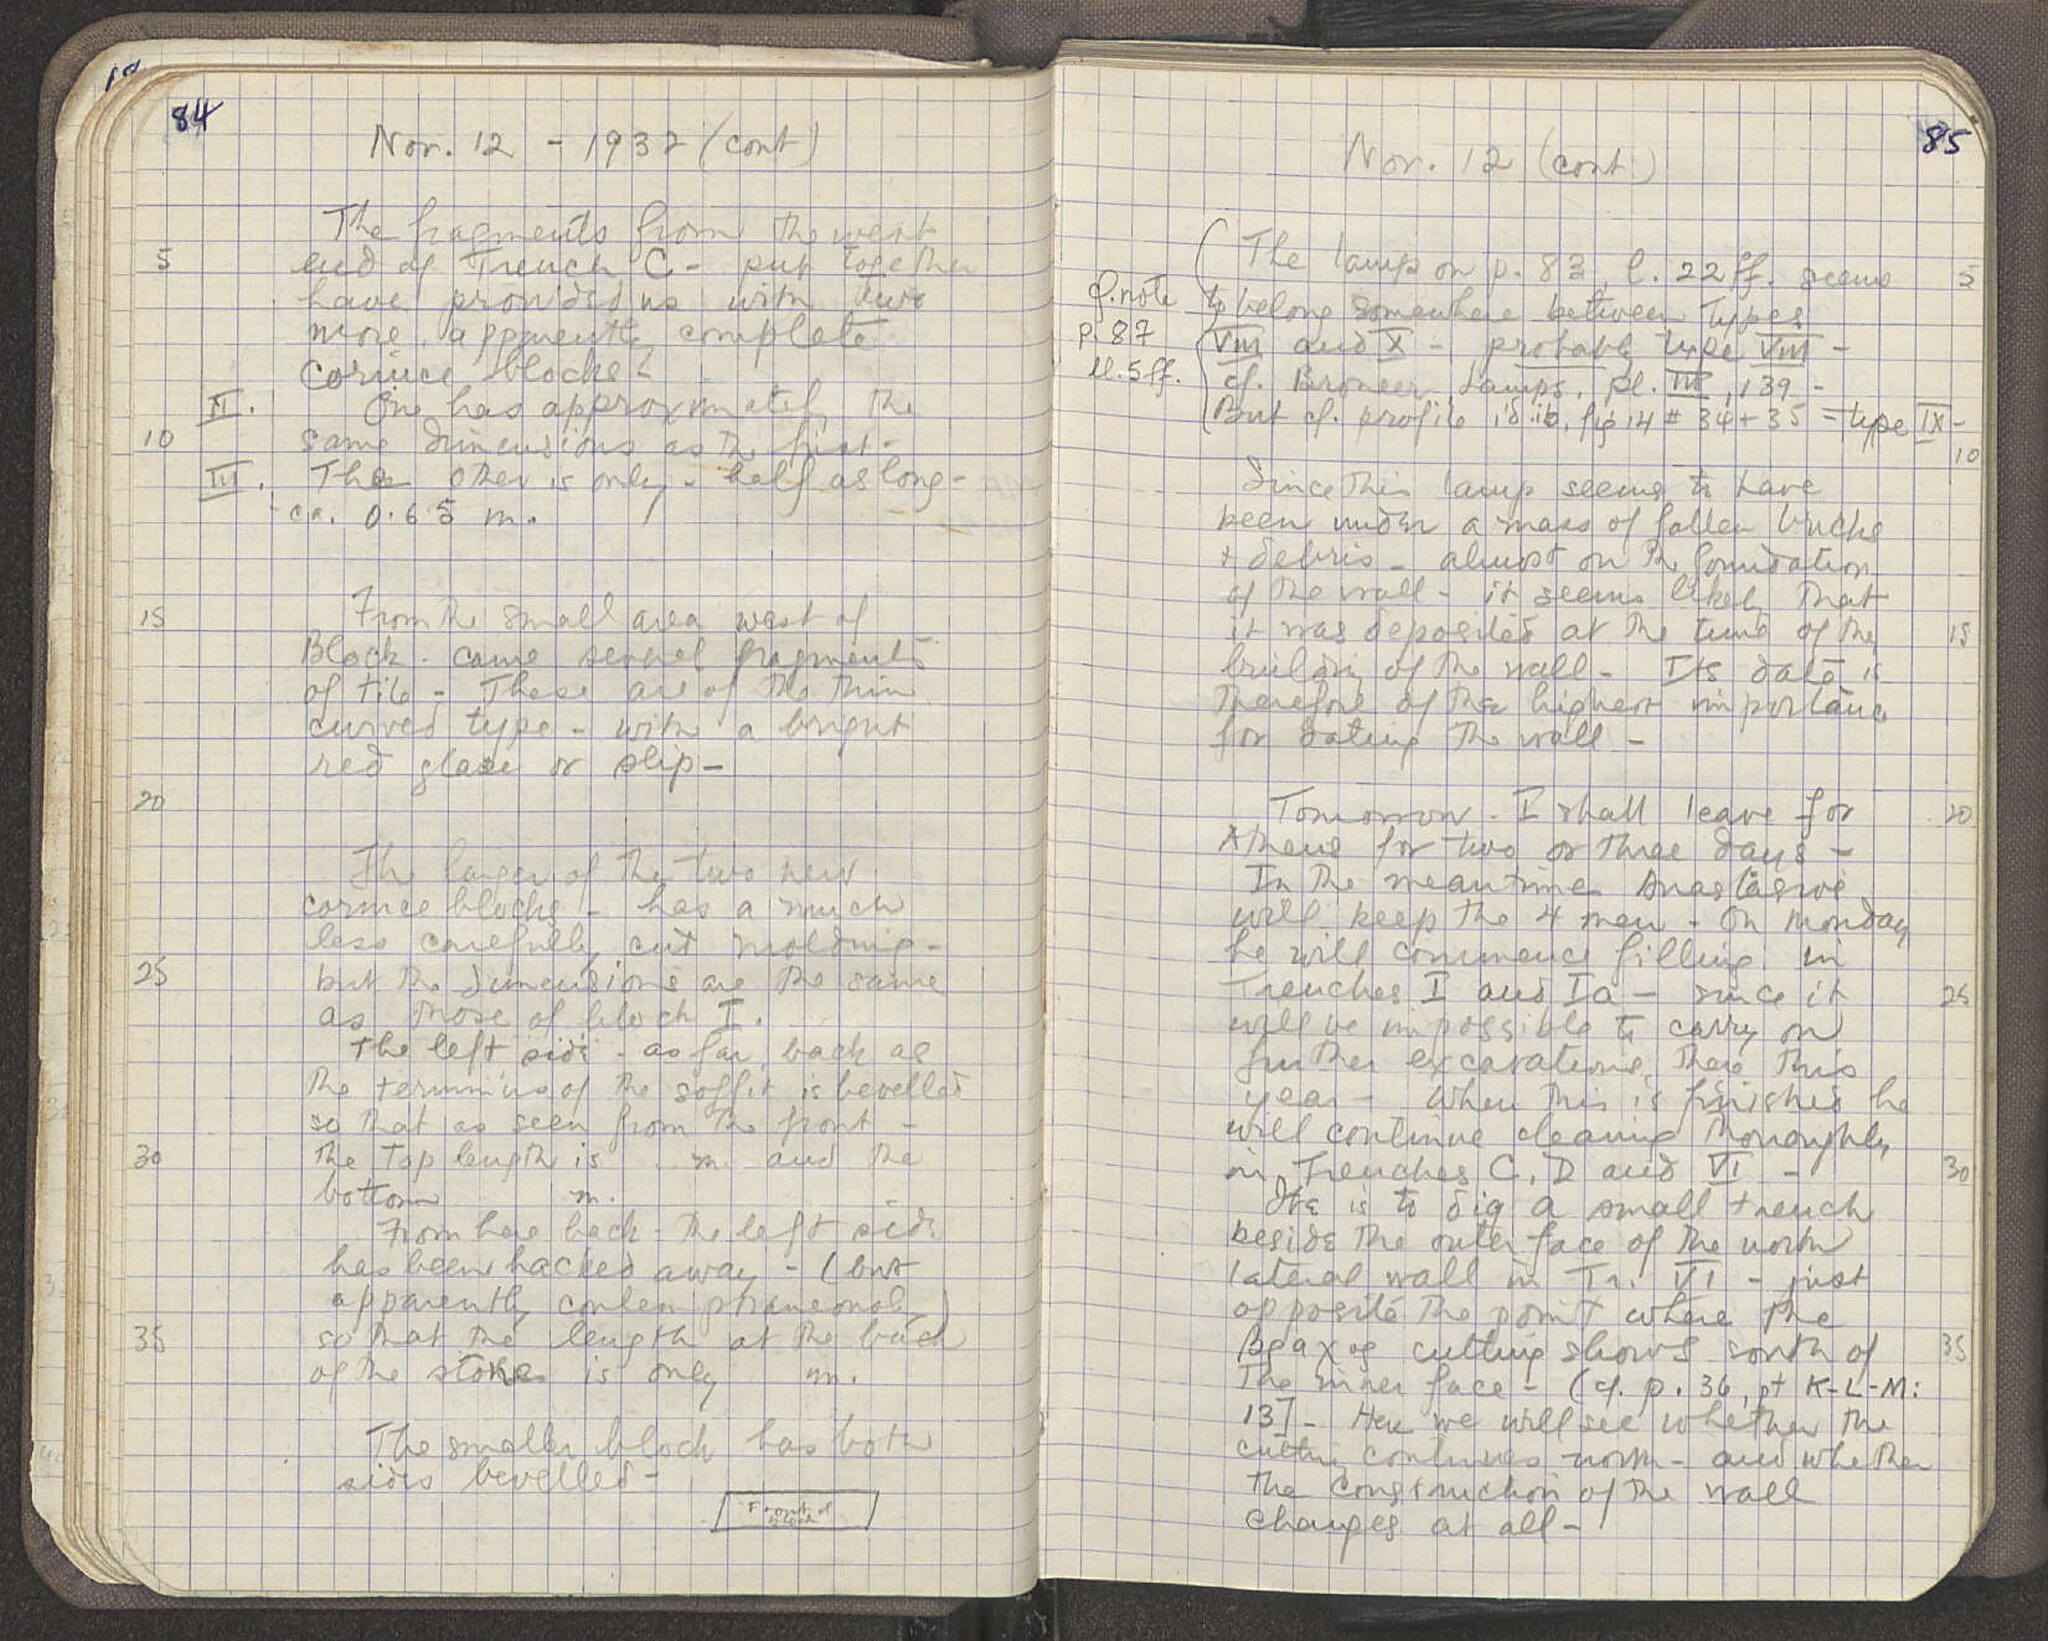 84
Nov. 12 - 1932 (cont)
The fragments from the west
5 end of Trench C - put together
have provided us with two
more, apparently complete
cornice blocks -
II. One has approximately the
10 same dimensions as the first -
III. The other is only - half as long -
ca. 0.65 m.
15 From the small area west of
Block - came several fragments
of tile - These are of the thin
curved type - with a bright
red glaze or slip -
20
The larger of the two new
cornice blocks - has a much
less carefully cut molding -
25 but the dimensions are the same
as those of block I.
The left side - as far back as
the terminus of the soffit is bevelled
so that as seen from the front -
30 the top length is m. and the
bottom m.
From here back - the left side
has been hacked away - (but
apparently contemporaneously)
35 so that the length at the back
of the stone is only m.
The smaller block has both
sides bevelled -
Front of block
85
Nov. 12 (cont)
The lamp on p. 83, l. 22 ff. seems 5
cf. note to belong somewhere between Types
p. 87 VIII and X - probably type VIII -
ll. 5 ff. cf. Broneer, Lamps, pl. , 139 -
But cf. profile, ib., fig 14 # 34 + 35 = type IX -
10
Since this lamp seems to have
been under a mass of fallen bricks
+ debris - almost on the foundation
of the wall - it seems likely that
it was deposited at the time of the 15
building of the wall - Its date is
therefore of the highest importance
for dating the wall -
Tomorrow - I shall leave for 20
Athens for two or three days -
In the meantime Anastasios
will keep the 4 men - On Monday
he will commence filling in
Trenches I and Ia - since it 25
will be impossible to carry on
further excavations there this
year - When this is finished he
will continue cleaning thoroughly
in Trenches C, D and VI - 30
He is to dig a small trench
beside the outer face of the north
lateral wall in Tr. VI - just
opposite the point where the
Βραχος cutting shows south of 35
the inner face - (cf. p. 36, pt K-L-M:
137 - Here we will see whether the
cutting continues north - and whether
the construction of the wall
changes at all -